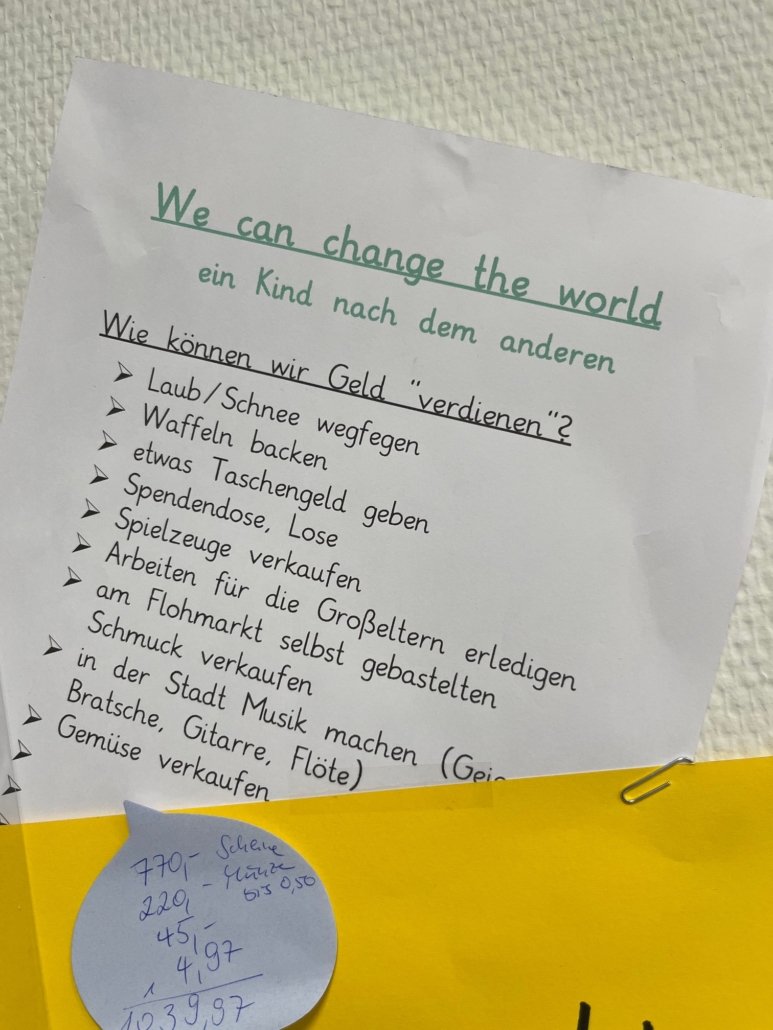 We can change the world
ein Kind nach dem anderen
Wie können wir Geld "verdienen"?
➢ Laub/Schnee wegfegen
➢ Waffeln backen
➢ etwas Taschengeld geben
➢ Spendendose, Lose
➢ Spielzeuge verkaufen
➢ Arbeiten für die Großeltern erledigen
➢ am Flohmarkt selbst gebastelten
Schmuck verkaufen
➢ in der Stadt Musik machen (Gei
Bratsche, Gitarre, Flöte)
➢ Gemüse verkaufen
770,- Scheine
220,- Münze
bis 0,50
45,-
4,97
1039,97